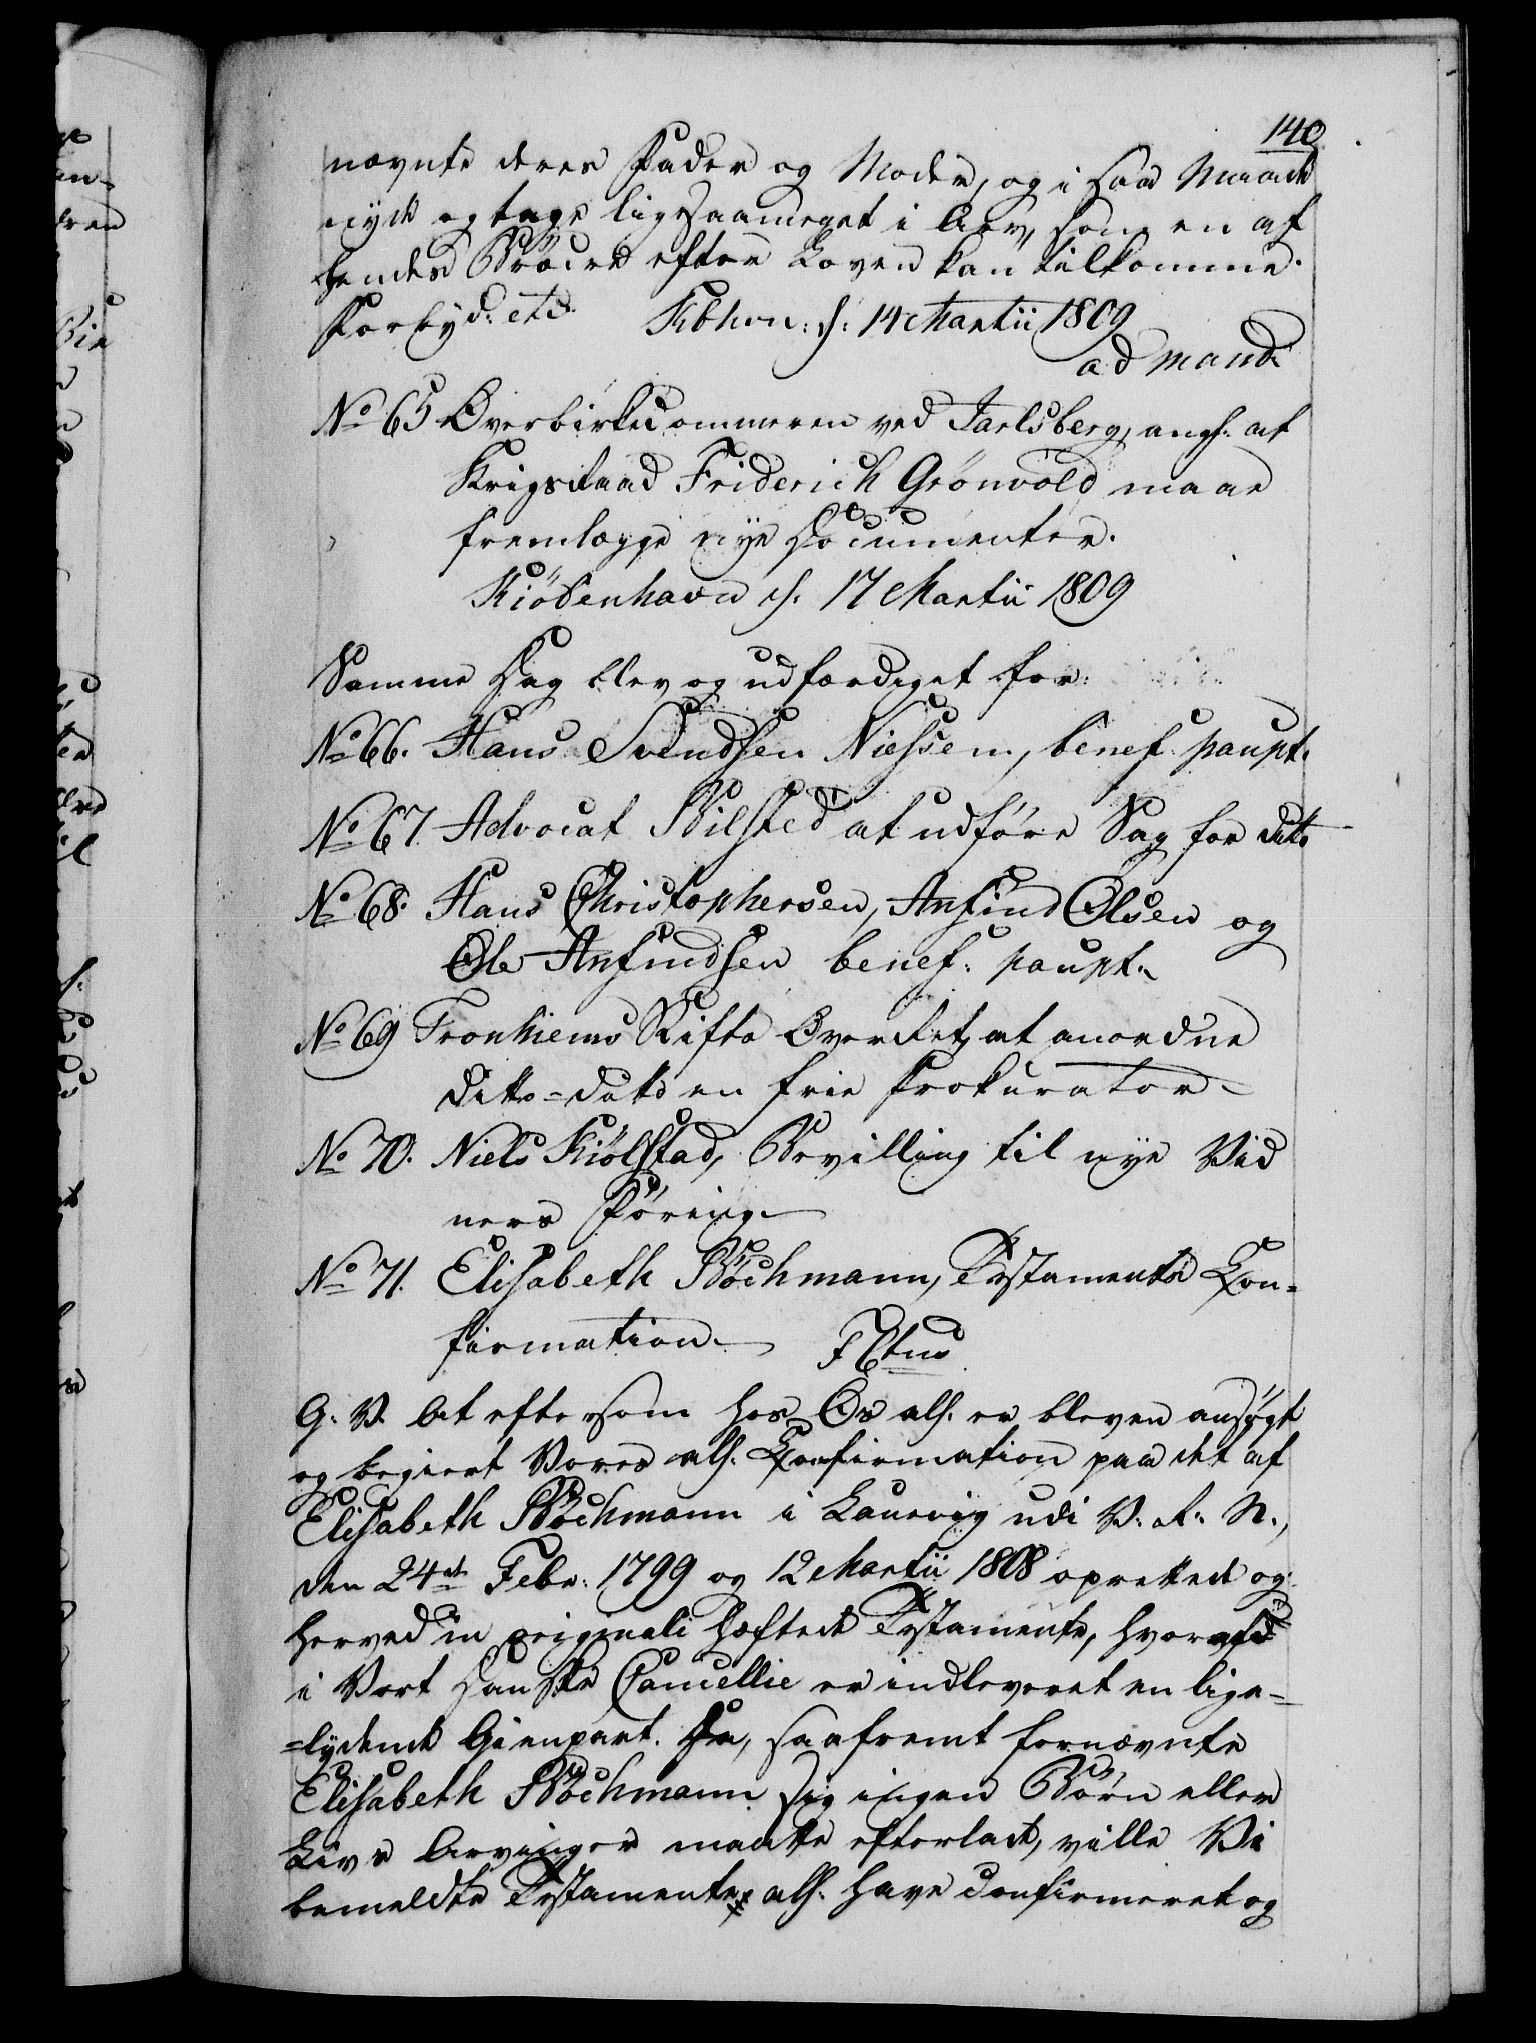 140
nævnte deres Fader og Moder, og i saa Maade
nyde og tage ligesaameget i Arv, som en af
hendes Brødre efter Loven kan tilkomme.
Forbyd: etc. Kbhvn: d: 14 Martii 1809
ad mand:
No 65 Overbirkedommeren ved Jarlsberg, angl: at
Krigsraad Friderich Grönvold maae
fremlægge nye Documenter.
Kiöbenhavn d. 17 Martii 1809
Samme Dag blev og udfærdiget for:
No 66. Hans Svendsen Nielsen, benef: paupt.
No 67. Advocat Bilsted at udföre Sag for ditto
No 68. Hans Christophersen, Anfind Olsen og
Ole Anfindsen benef: paupt.
No 69 Tronhiems Stifts Overret, at anordne
ditto-ditto en frie Prokurator
No 70. Niels Kiölstad, Bevilling til nye Vid
ners Föring
No 71. Elisabeth Böchmann, Testaments Con-
firmation.
G. V. At eftersom hos Os all. er bleven ansögt
og begiert Vores all. Confirmation paa det af
Elisabeth Böchmann i Laurvig udi V. R. N.,
den 24de Febr: 1799 og 12 Martii 1808 oprettede og
herved in originali hæftede Testamente, hvoraf
i Vort Danske Cancellie er indleveret en lige-
=lydende Gienpart. Da, saafremt fornævnte
Elisabeth Böchmann sig ingen Börn eller
Livs Arvinger maatte efterlade, ville Vi
bemeldte Testamente all. have confirmeret og